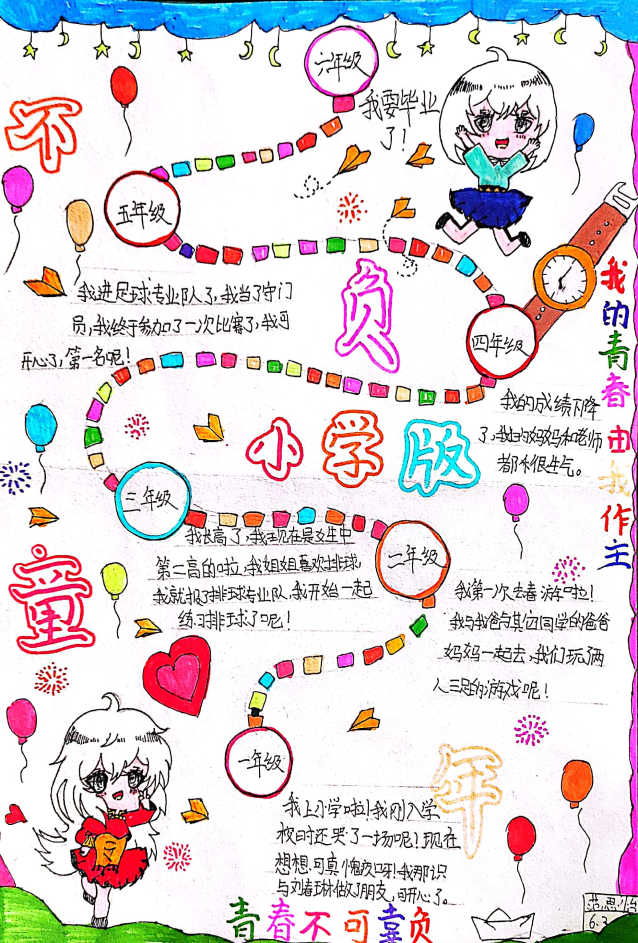 六年级
我要毕业
了！
不
五年级
我进足球专业队了，我当了守门
员，我终于参加了一次比赛了，我可
开心了，第一名呢！
负
四年级
我的成绩下降
了，我的妈妈和老师
都很生气。
我的青春由我作主
小学版
三年级
我长高了，我现在是女生中
第二高的啦，我姐姐喜欢排球，
我就报了排球专业队，我开始一起
练习排球了呢！
二年级
我第一次去春游啦！
我与我爸与其它同学的爸爸
妈妈一起去，我们玩了俩
人三足的游戏呢！
童
一年级
年
我上小学啦！我刚入学
校时还哭了一场呢！现在
想想，可真愧疚呀！我那识
与刘春琳做了朋友，可开心了。
青春不可辜负
6.3